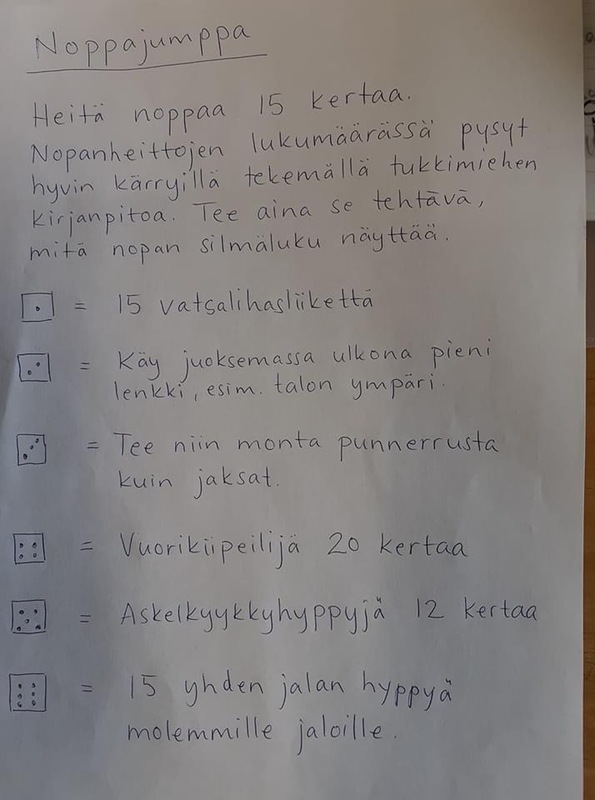 Noppajumppa
Heitä noppaa 15 kertaa.
Nopanheittojen lukumäärässä pysyt
hyvin kärryillä tekemällä tukkimiehen
kirjanpitoa. Tee aina se tehtävä,
mitä nopan silmäluku näyttää.
= 15 vatsalihasliikettä
= Käy juoksemassa ulkona pieni
lenkki, esim. talon ympäri.
= Tee niin monta punnerrusta
kuin jaksat.
= Vuorikiipeilijä 20 kertaa
= Askelkyykkyhyppyjä 12 kertaa
= 15 yhden jalan hyppyä
molemmille jaloille.